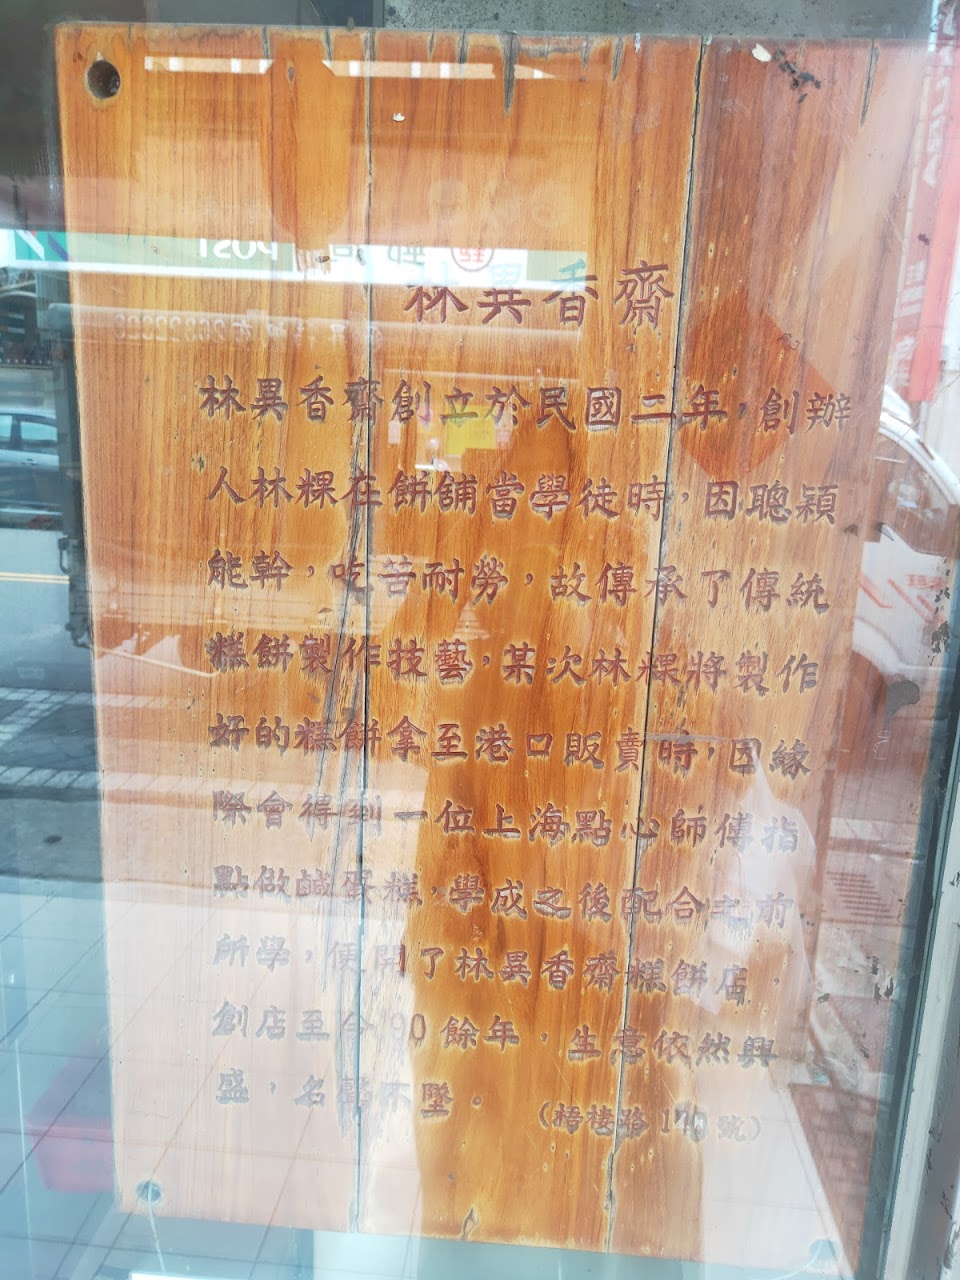 林異香齋
林異香齋創立於民國二年，創辦
人林粿在餅舖當學徒時，因聰穎
能幹，吃苦耐勞，故傳承了傳統
糕餅製作技藝，某次林粿將製作
好的糕餅拿至港口販賣時，因緣
際會得到一位上海點心師傅指
點做鹹蛋糕，學成之後配合之前
所學，便開了林異香齋糕餅店，
創店至今90餘年，生意依然興
盛，名聲不墜。
（梧棲路 1 號）
POST